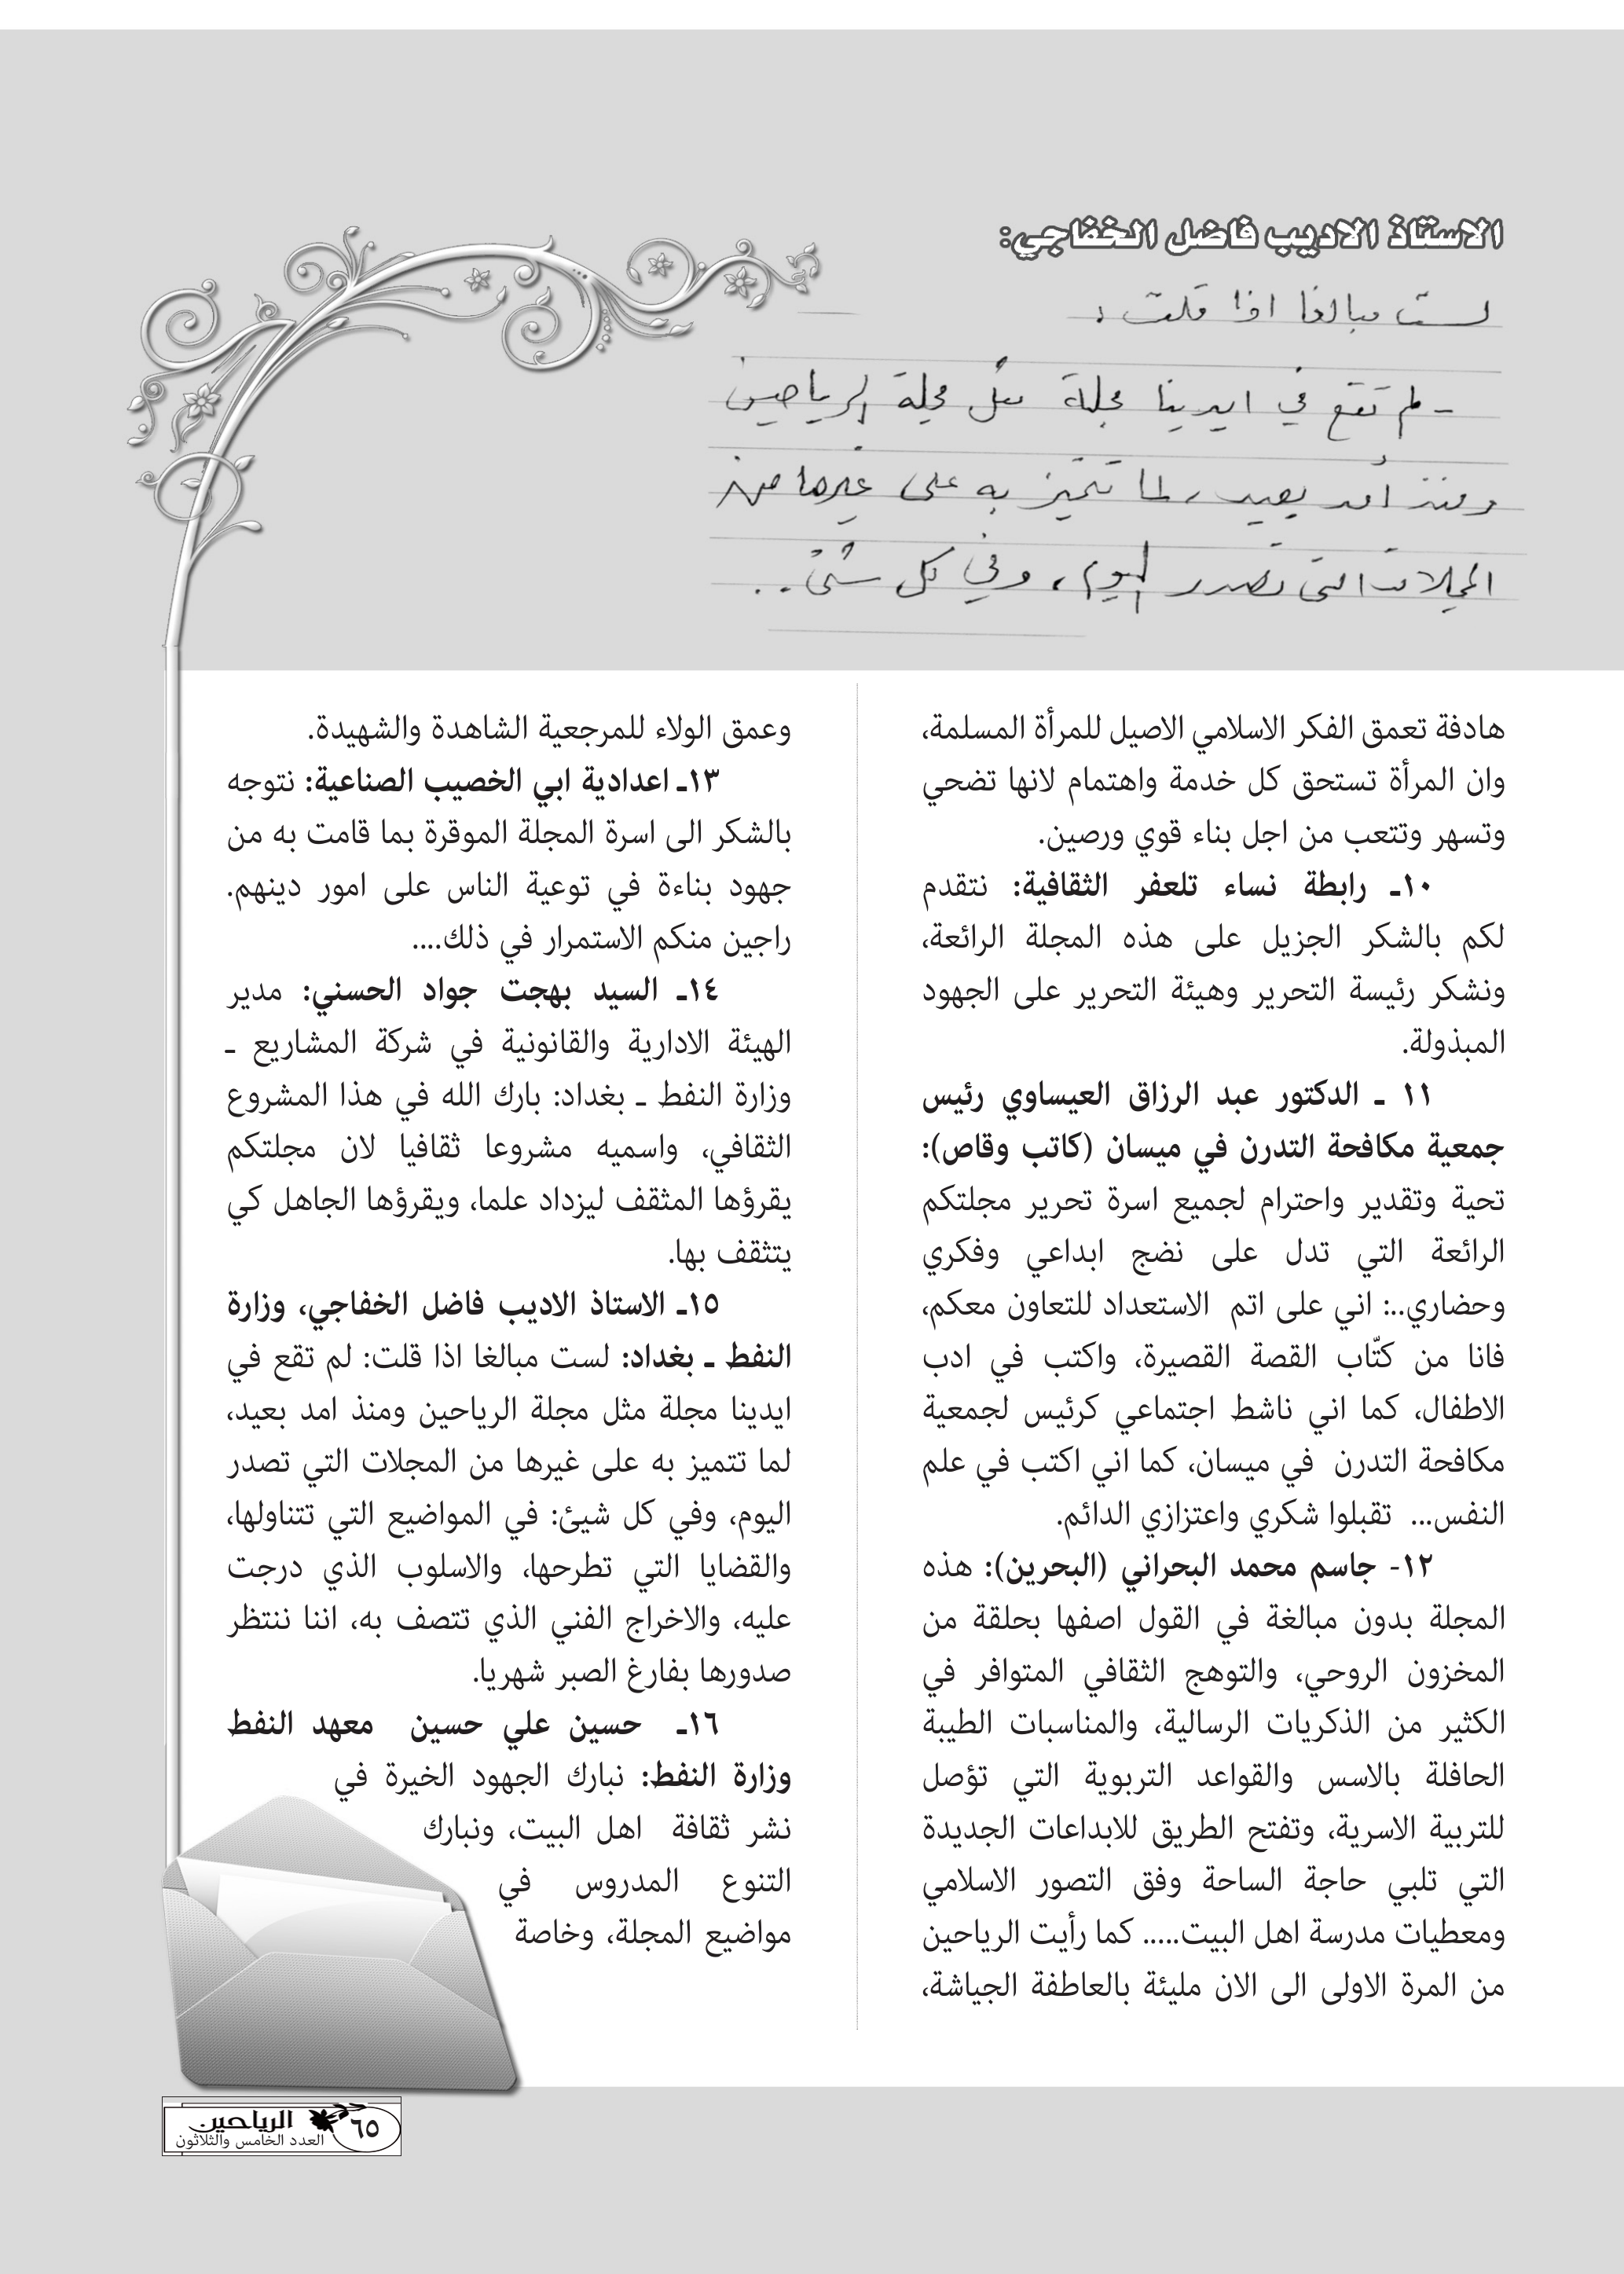 الاستاذ الاديب فاضل الخفاجي:
لست مبالغا اذا قلت :
- لم تقع في ايدينا مجلة مثل مجلة الرياحين
ومنذ أمد بعيد، لما تتميز به على غيرها من
المجلات التي تصدر اليوم، وفي كل شئ..
هادفة تعمق الفكر الاسلامي الاصيل للمرأة المسلمة،
وان المرأة تستحق كل خدمة واهتمام لانها تضحي
وتسهر وتتعب من اجل بناء قوي ورصين.
١٠ـ رابطة نساء تلعفر الثقافية: نتقدم
لكم بالشكر الجزيل على هذه المجلة الرائعة،
ونشكر رئيسة التحرير وهيئة التحرير على الجهود
المبذولة.
١١ ـ الدكتور عبد الرزاق العيساوي رئيس
جمعية مكافحة التدرن في ميسان (كاتب وقاص):
تحية وتقدير واحترام لجميع اسرة تحرير مجلتكم
الرائعة التي تدل على نضج ابداعي وفكري
وحضاري..: اني على اتم الاستعداد للتعاون معكم،
فانا من كتّاب القصة القصيرة، واكتب في ادب
الاطفال، كما اني ناشط اجتماعي كرئيس لجمعية
مكافحة التدرن في ميسان، كما اني اكتب في علم
النفس... تقبلوا شكري واعتزازي الدائم.
١٢- جاسم محمد البحراني (البحرين): هذه
المجلة بدون مبالغة في القول اصفها بحلقة من
المخزون الروحي، والتوهج الثقافي المتوافر في
الكثير من الذكريات الرسالية، والمناسبات الطيبة
الحافلة بالاسس والقواعد التربوية التي تؤصل
للتربية الاسرية، وتفتح الطريق للابداعات الجديدة
التي تلبي حاجة الساحة وفق التصور الاسلامي
ومعطيات مدرسة اهل البيت..... كما رأيت الرياحين
من المرة الاولى الى الان مليئة بالعاطفة الجياشة،
وعمق الولاء للمرجعية الشاهدة والشهيدة.
١٣ـ اعدادية ابي الخصيب الصناعية: نتوجه
بالشكر الى اسرة المجلة الموقرة بما قامت به من
جهود بناءة في توعية الناس على امور دينهم.
راجين منكم الاستمرار في ذلك....
١٤ـ السيد بهجت جواد الحسني: مدير
الهيئة الادارية والقانونية في شركة المشاريع ـ
وزارة النفط ـ بغداد: بارك الله في هذا المشروع
الثقافي، واسميه مشروعا ثقافيا لان مجلتكم
يقرؤها المثقف ليزداد علما، ويقرؤها الجاهل كي
يتثقف بها.
١٥ـ الاستاذ الاديب فاضل الخفاجي، وزارة
النفط ـ بغداد: لست مبالغا اذا قلت: لم تقع في
ايدينا مجلة مثل مجلة الرياحين ومنذ امد بعيد،
لما تتميز به على غيرها من المجلات التي تصدر
اليوم، وفي كل شيئ: في المواضيع التي تتناولها،
والقضايا التي تطرحها، والاسلوب الذي درجت
عليه، والاخراج الفني الذي تتصف به، اننا ننتظر
صدورها بفارغ الصبر شهريا.
١٦ـ حسين علي حسين معهد النفط
وزارة النفط: نبارك الجهود الخيرة في
نشر ثقافة اهل البيت، ونبارك
التنوع المدروس في
مواضيع المجلة، وخاصة
٦٥ الرياحين
العدد الخامس والثلاثون